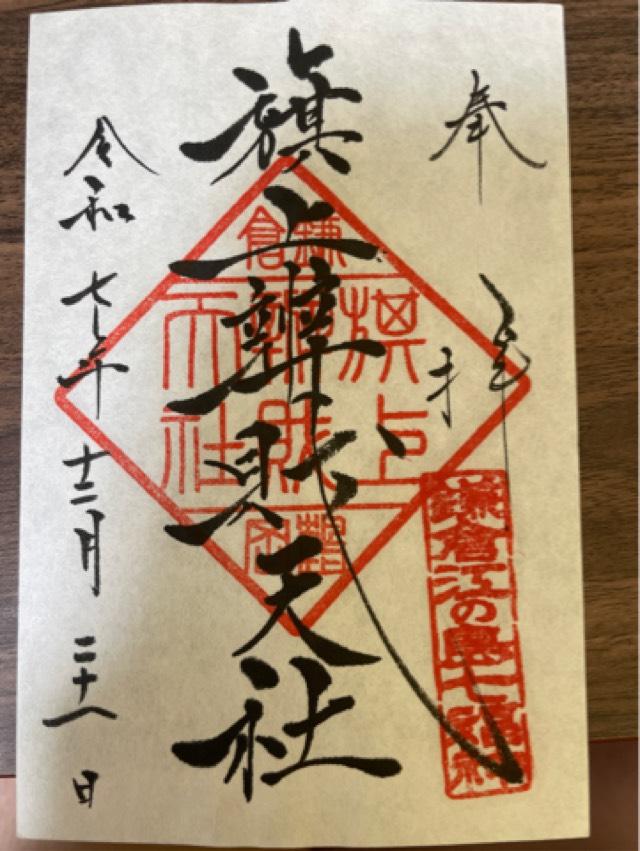 奉拝
旗上辨財天社
令和七年十二月二十八日
鎌倉
旗上
辨財
天社
鎌倉江の島七福神